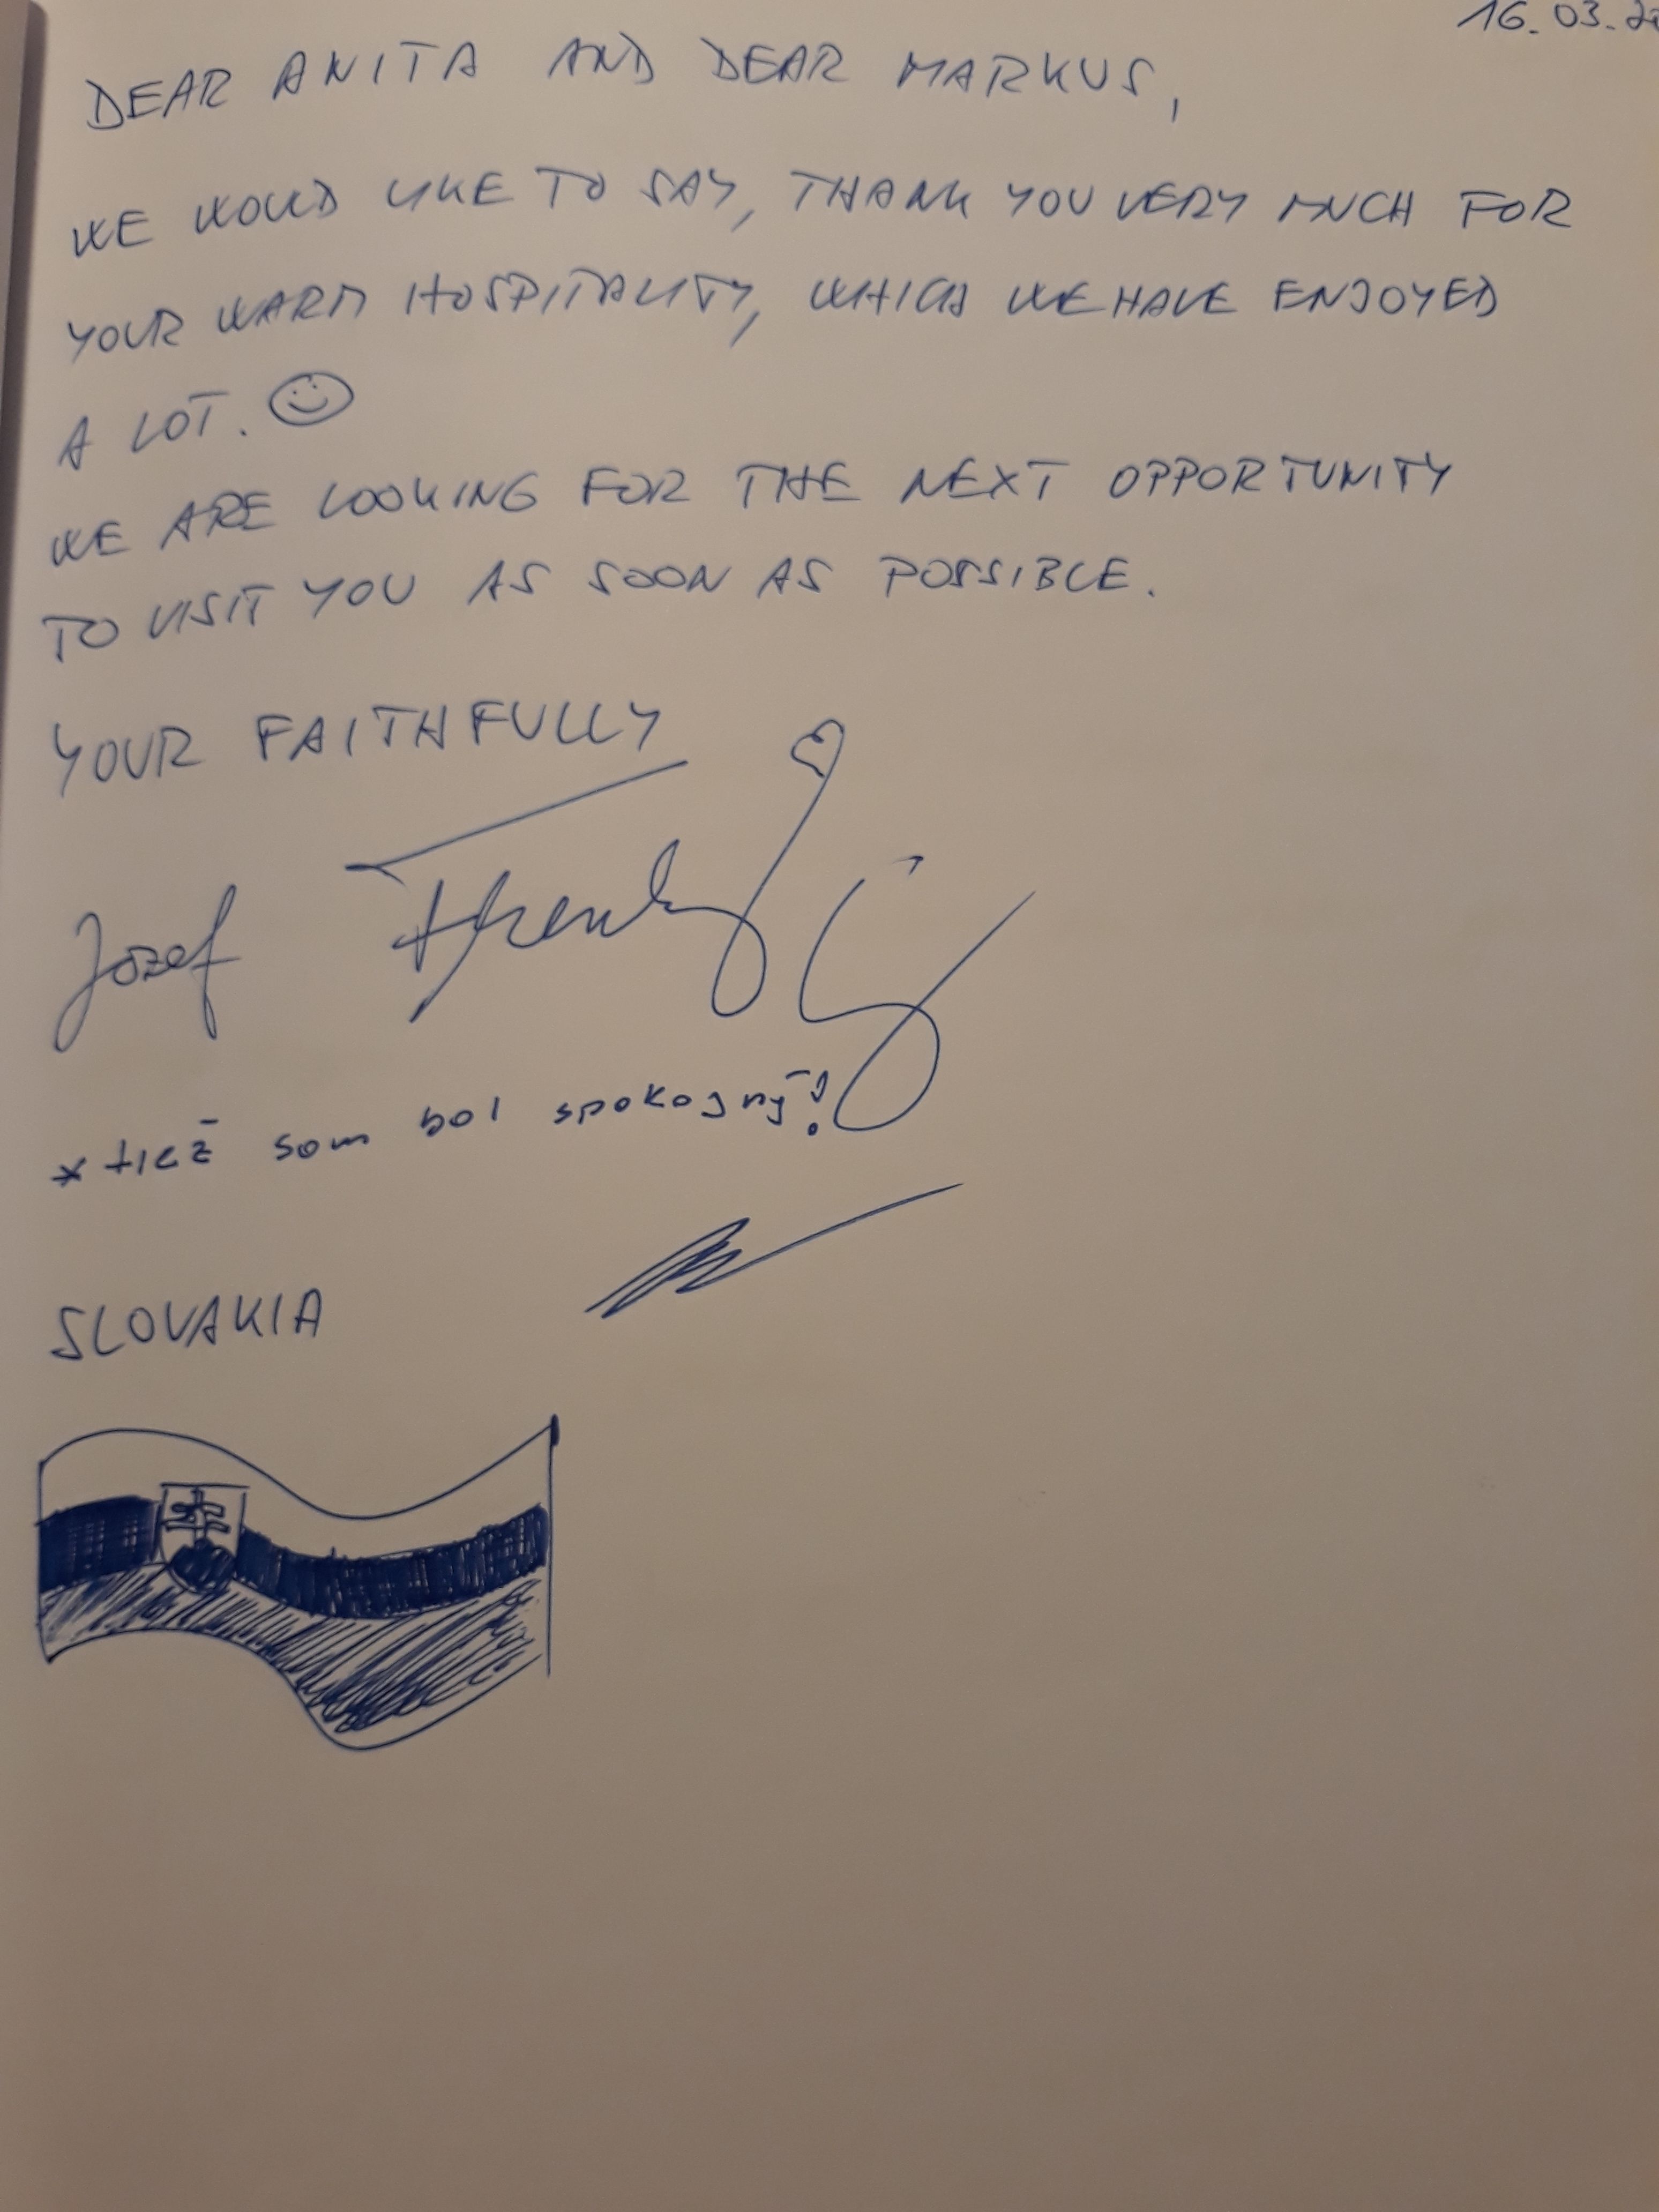 16.03.
DEAR ANITA AND DEAR MARKUS,
WE WOULD LIKE TO SAY, THANK YOU VERY MUCH FOR
YOUR WARM HOSPITALITY, WHICH WE HAVE ENJOYED
A LOT. ☺
WE ARE LOOKING FOR THE NEXT OPPORTUNITY
TO VISIT YOU AS SOON AS POSSIBLE.
YOUR FAITHFULLY
Jozef
* tiež som bol spokojný!
SLOVAKIA